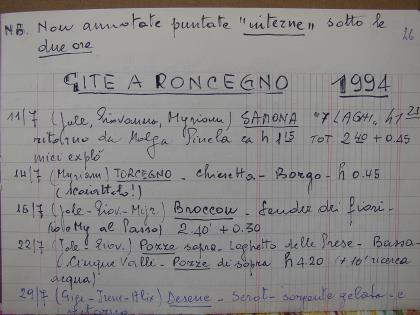 NB. Non annotate puntate "interne" sotto le
due ore
26
GITE A RONCEGNO 1994
11/7 (Jole, Giovanna, Myriam) SAMONA "7 LAGHI" h 1 25
ritorno da Malga Pinela ca h 1 15 TOT 2 40 + 0.45
mici explò
14/7 (Myriam) TORCEGNO - chiesetta - Borgo - h 0.45
(scoiattolo!)
15/7 (Jole - Giov - Myr.) Broccon - Sentier dei fiori -
solo My al Passo) 2.40' + 0.30
22/7 (Jole - Giov.) Pozze sopra - Laghetto delle Prese - Bassa -
(Cinque Valle - Pozze di sopra h 4.20 (+ 10' ricerca
acqua)
29/7 (Gige - Irene - Alix) Desene - Serot - sorgente gelata - e